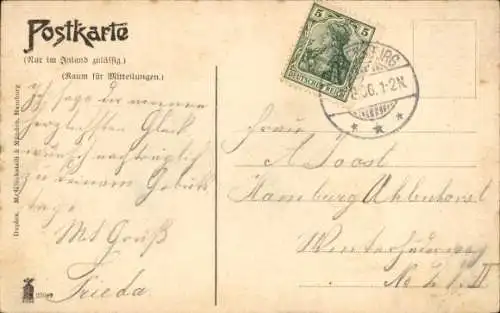 Postkarte
(Nur im Inland zulässig.)
(Raum für Mitteilungen.)
Ich sage dir meinen
herzlichsten Glück
wunsch nachträglich
zu deinem Geburts
tage
Mit Gruß
Frieda
5 5
DEUTSCHES REICH
1-2N
Frau
A Joost
Hamburg Uhlenhorst
Winterhuderweg
No II
Hamburg